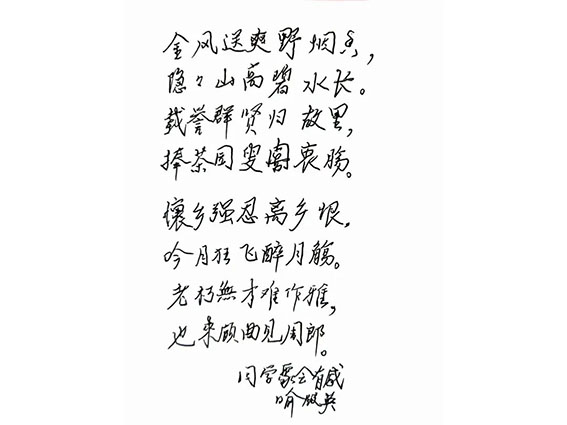 金风送爽野烟,
隐々山高碧水长。
载誉群贤归故里,
捧茶园叟衷肠。
懷乡强忍离乡恨,
今月狂飞醉月觞。
老朽無才难作雅,
也来顾曲见周郎。
同学聚会有感
喻英